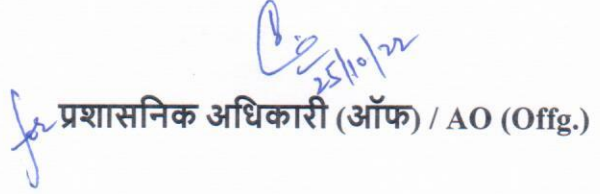 25/10/22
for प्रशासनिक अधिकारी (ऑफ) / AO (Offg.)